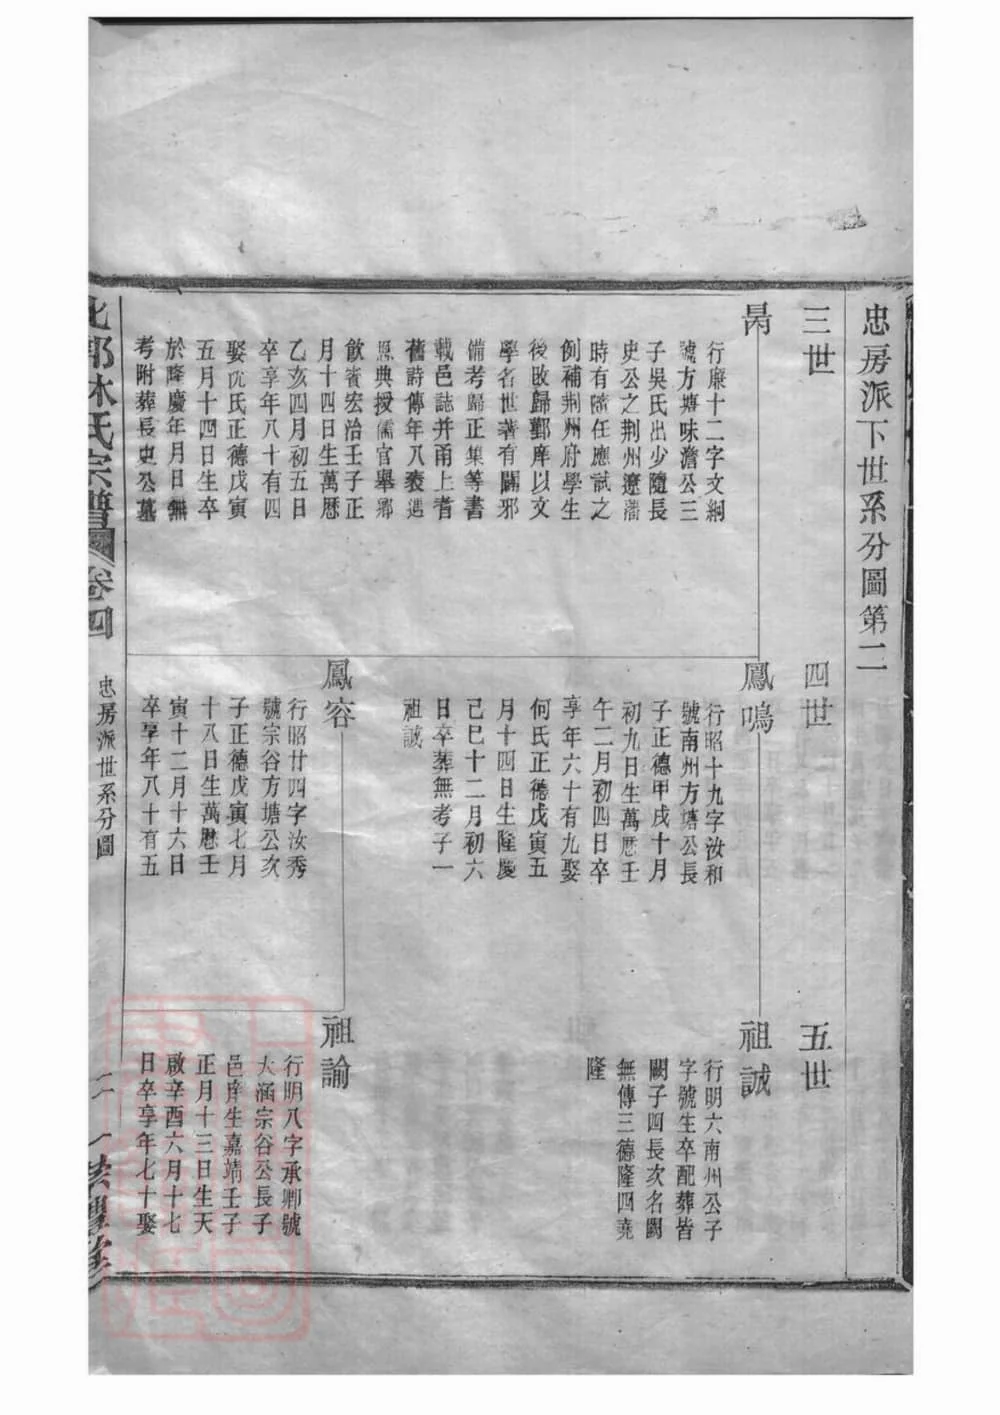 忠房派下世系分圖第二
三世
四世
五世
昺
行廉十二字文綱
號方塘味澹公三
子吳氏出少隨長
史公之荆州遼藩
時有隨任應試之
例補荆州府學生
後敀歸鄞庠以文
學名世著有闢邪
備考歸正集等書
載邑誌并甬上耆
舊詩傳年八袠遇
恩典授儒官舉鄉
飲賓宏治壬子正
月十四日生萬厯
乙亥四月初五日
卒享年八十有四
娶沈氏正德戊寅
五月十四日生卒
於隆慶年月日無
考附葬長史公墓
鳳鳴
行昭十九字汝和
號南州方塘公長
子正德甲戌十月
初九日生萬厯壬
午二月初四日卒
享年六十有九娶
何氏正德戊寅五
月十四日生隆慶
己巳十二月初六
日卒葬無考子一
祖誠
鳳容
行昭廿四字汝秀
號宗谷方塘公次
子正德戊寅七月
十八日生萬厯壬
寅十二月十六日
卒享年八十有五
祖誠
行明六南州公子
字號生卒配葬皆
闕子四長次名闕
無傳三德隆四堯
隆
祖諭
行明八字承卿號
大涵宗谷公長子
邑庠生嘉靖壬子
正月十三日生天
啟辛酉六月十七
日卒享年七十娶
林氏宗譜
卷四
忠房派世系分圖